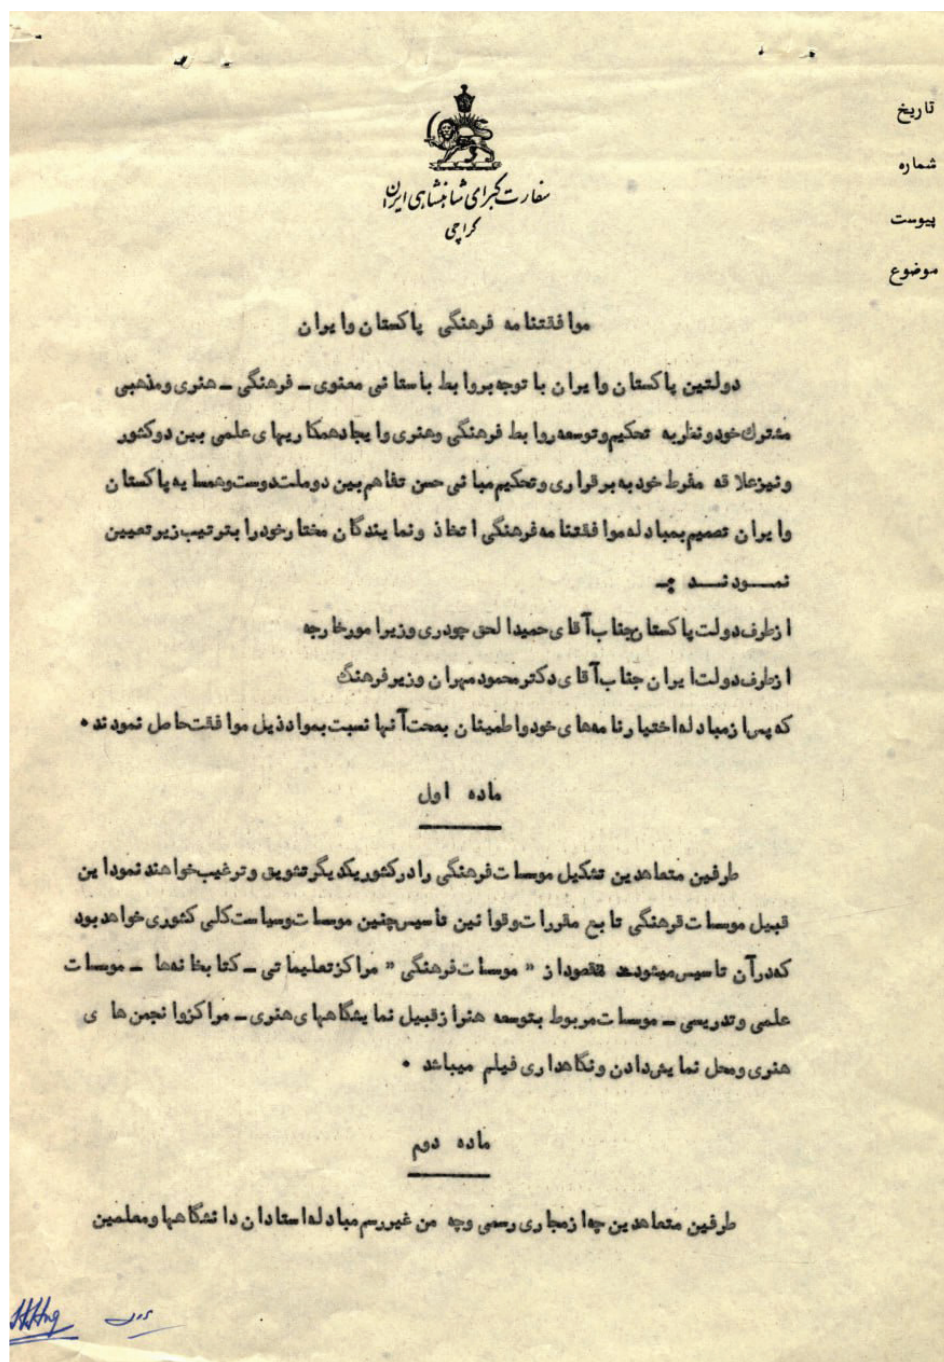 تاریخ
شماره
پیوست
موضوع
سفارت کبرای شاهنشاهی ایران
کراچی
موافقتنامه فرهنگی پاکستان وایران
دولتین پاکستان وایران با توجه بروابط باستانی معنوی ـ فرهنگی ـ هنری ومذهبی
مشترك خود ونظر به تحکیم وتوسعه روابط فرهنگی وهنری وایجاد همکاریهای علمی بین دوکشور
ونیز علاقه مفرط خود به برقراری وتحکیم مبانی حسن تفاهم بین دوملت دوست وهمسایه پاکستان
وایران تصمیم بمبادله موافقتنامه فرهنگی اتخاذ ونمایندگان مختار خود را بترتیب زیر تعیین
نمــودنــد
از طرف دولت پاکستان جناب آقای حمید الحق چودری وزیر امور خارجه
از طرف دولت ایران جناب آقای دکتر محمود مهران وزیر فرهنگ
که پس از مبادله اختیارنامه های خود واطمینان بصحت آنها نسبت بمواد ذیل موافقت حاصل نمودند ۰
ماده اول
طرفین متعاهدین تشکیل موسسات فرهنگی را در کشور یکدیگر تشویق وترغیب خواهند نمود این
قبیل موسسات فرهنگی تابع مقررات وقوانین تاسیس چنین موسسات وسیاست کلی کشوری خواهد بود
که در آن تاسیس میشود مقصود از " موسسات فرهنگی " مراکز تعلیماتی ـ کتابخانه ها ـ موسسات
علمی وتدریسی ـ موسسات مربوط بتوسعه هنر از قبیل نمایشگاههای هنری ـ مراکز وانجمن ها ی
هنری ومحل نمایش دادن ونگاهداری فیلم میباشد ۰
ماده دوم
طرفین متعاهدین چه از مجاری رسمی وچه من غیر رسم مبادله استادان دانشگاهها ومعلمین